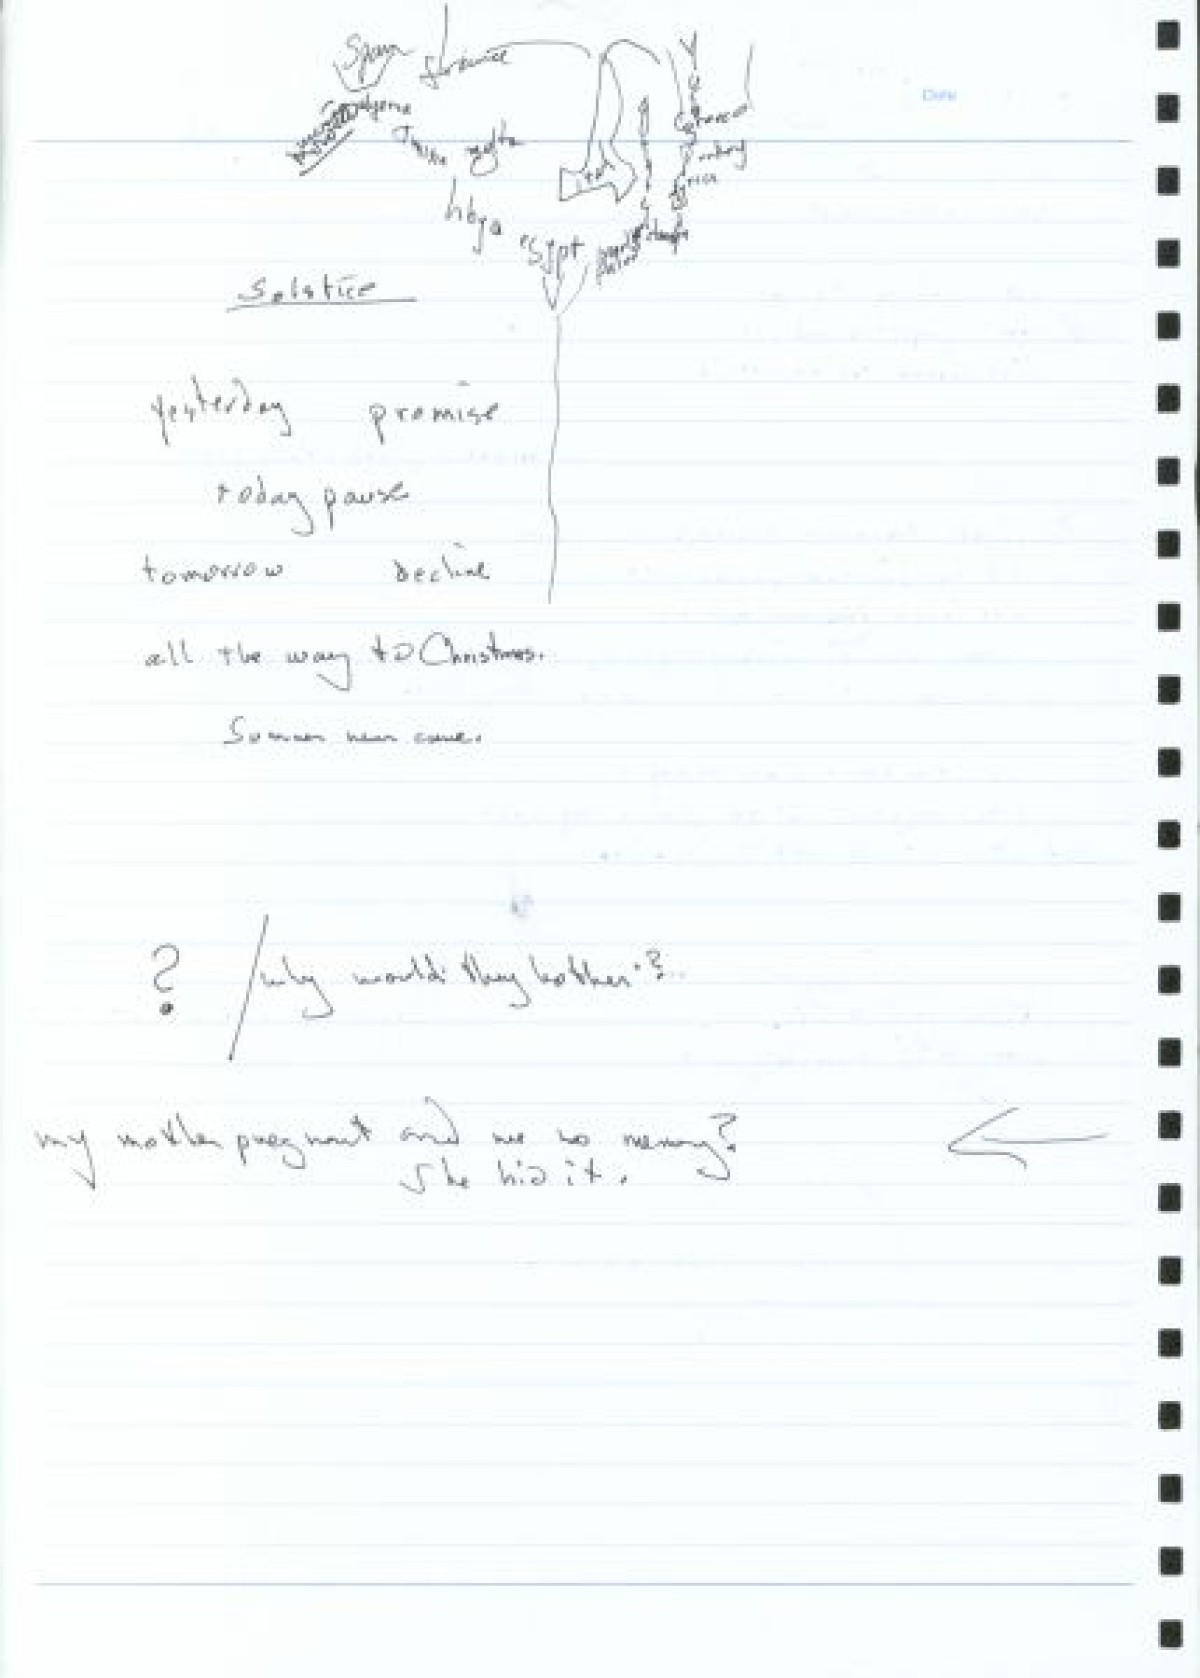 Spain
France
Date
Greece
malta
libya
Egypt
Solstice
yesterday promise
today pause
tomorrow decline
all the way to Christmas.
Summer never came.
? / why would they bother?
my mother pregnant and me no memory?
She hid it.